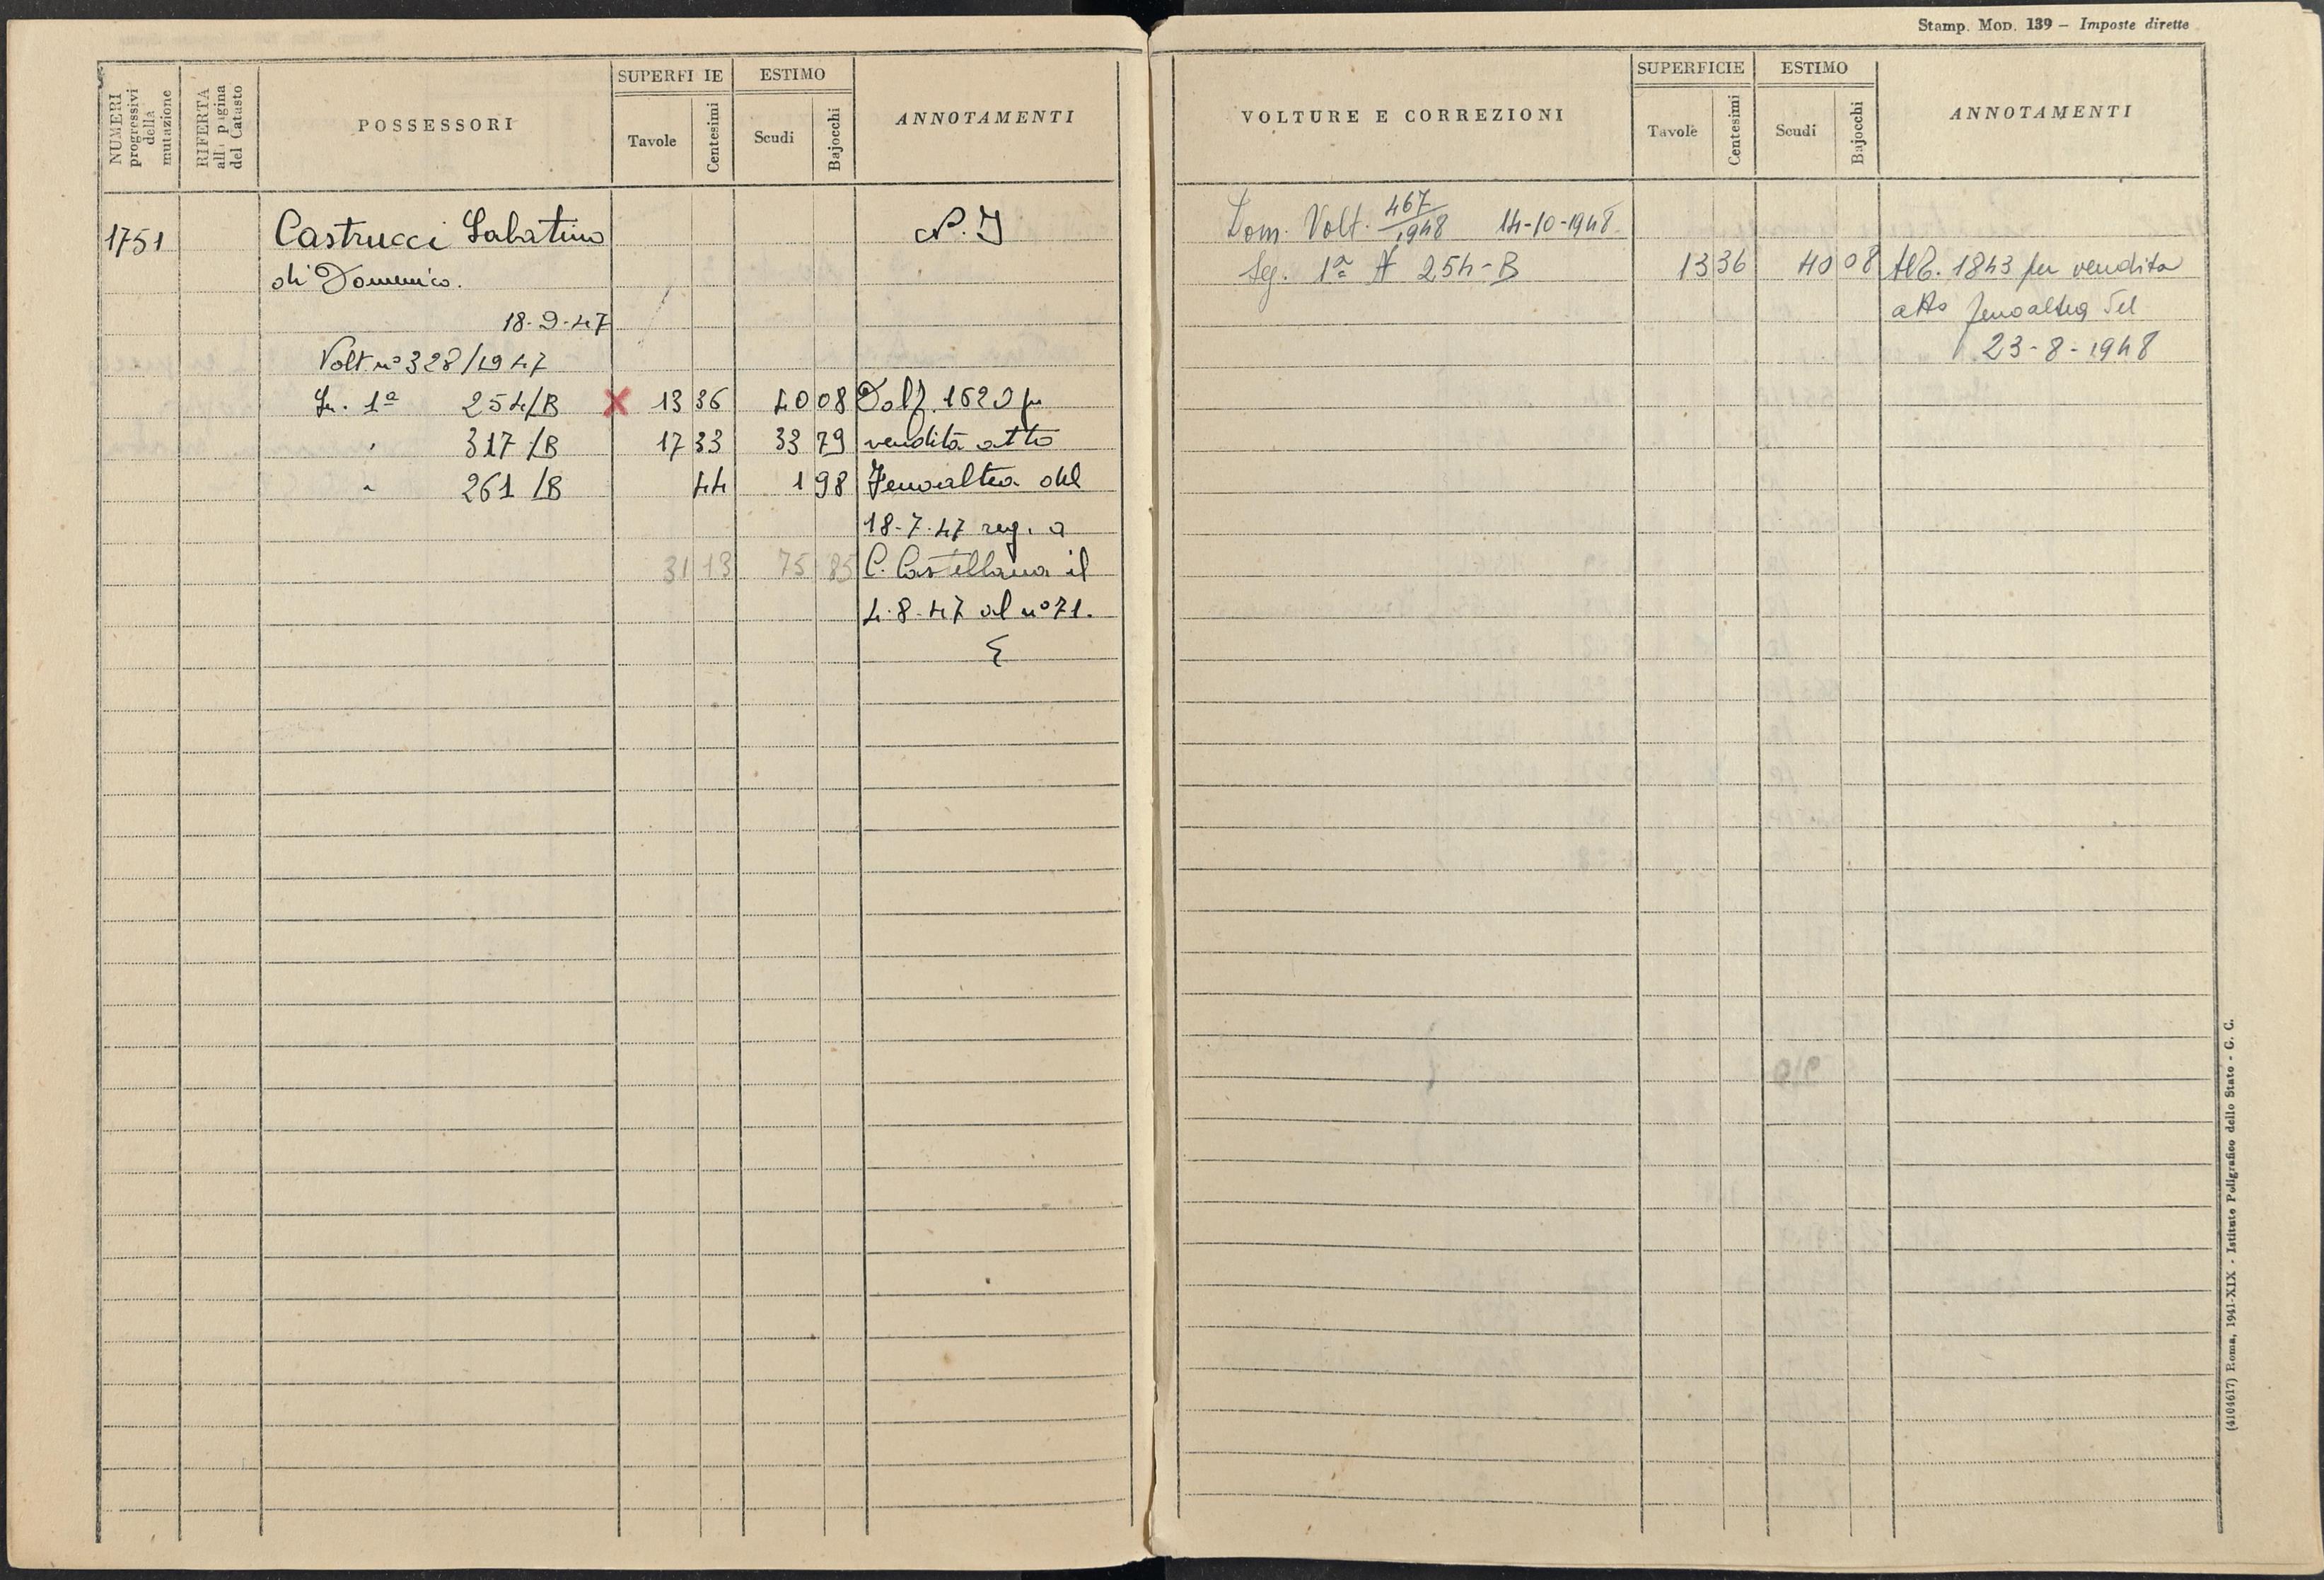 NUMERI progressivi della mutazione
RIFERTA alla pagina del Catasto
POSSESSORI
SUPERFI IE
Tavole
Centesimi
ESTIMO
Scudi
Bajocchi
ANNOTAMENTI
1751
Castrucci Sabatino
N. I
di Domenico.
18-9-47
Volt. n° 328/1947
1ª 254/B X 13 36 40 08 Dalf. 1620 per
" 317/B 17 33 33 79 vendita atto
" 261/B 44 1 98 Fenoaltea del
18-7-47 reg. a
31 13 75 85 C. Castellana il
4-8-47 al n° 71.
Stamp. Mod. 139 – Imposte dirette
VOLTURE E CORREZIONI
SUPERFICIE
Tavole
Centesimi
ESTIMO
Scudi
Bajocchi
ANNOTAMENTI
Dom. Volt. 467/1948 14-10-1948
Seg. 1ª 254-B 13 36 40 08 All. 1843 per vendita
atto Fenoaltea del
23-8-1948
(4104617) Roma, 1941-XIX - Istituto Poligrafico dello Stato - G. C.